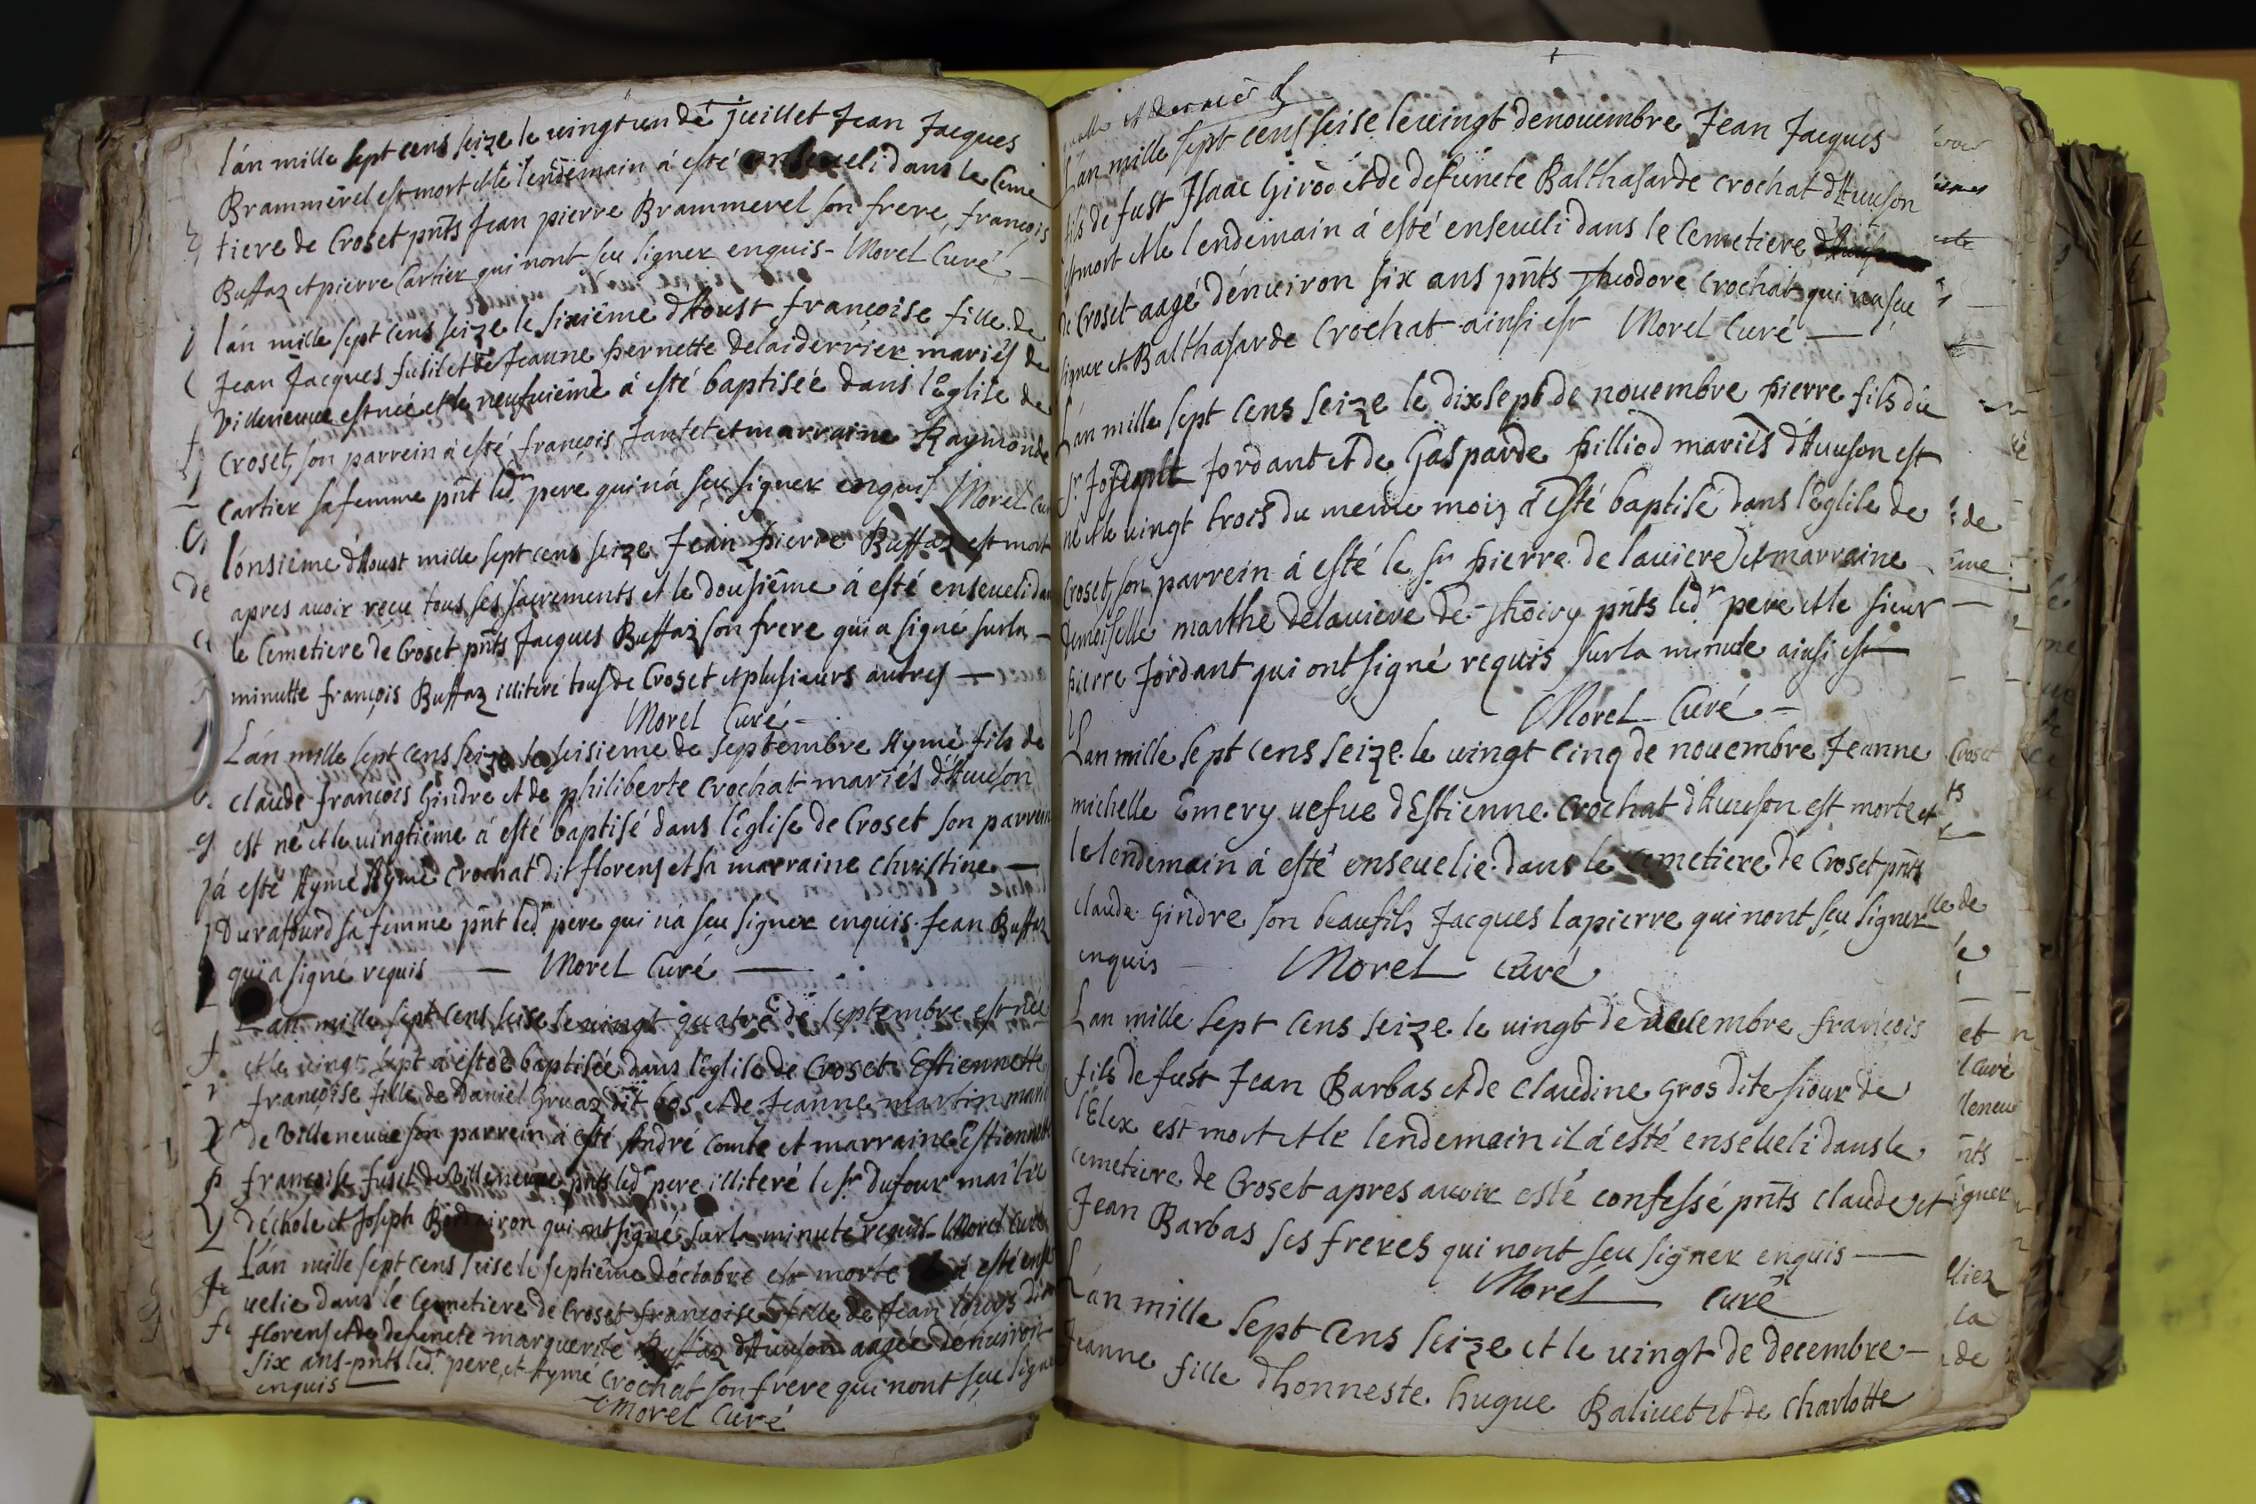 lán mille sept cens seize le uingt un de juillet Jean Jacques
Brammerel est mort et le lendemain á esté enseueli dans le Ceme
tiere de Croset pnts Jean pierre Brammerel son frere, françois
Buffaz et pierre Cartier qui nont seu signer enquis - Morel Curé
lán mille sept cens seize le sixiéme dAoust françoise fille de
Jean Jacques fusil et de Jeanne pernette delaiderrier mariés de
Villeneuue est née et le neufuiéme á esté baptisée dans lEglise de
Croset, son parrein á esté françois Jantet et marraine Raymonde
Cartier sa femme pnt ledr pere qui ná seu signer enquis Morel Cu
lónsiéme dAoust mille sept cens seize Jean pierre Buffaz est mort
apres auoir receu tous ses sacrements et le dousiéme á esté enseueli dan
le Cemetiere de Croset pnts Jacques Buffaz son frere qui a signé surla
minutte françois Buffaz illiteré tous de Croset et plusieurs autres
Morel Curé
Lán mille sept cens seize le seisieme de septembre Aymé fils de
claude françois Gindre et de philiberte Crochat mariés dAuuson
est né et le uingtiéme á esté baptisé dans lEglise de Croset son parrein
á esté Aymé Aymé Crochat dit florens et sa marraine christine
Durafourd sa femme pnt ledr pere qui ná seu signer enquis. Jean Buffaz
qui a signé requis Morel Curé
Lan mille sept cens seise le uingt quatre de septembre est née
et le uingt sept á estée baptisée dans lEglise de Croset Estiennette
françoise fille de Daniel Gruaz dit bos et de Jeanne martin marié
de Villeneuue son parrein á esté André Comte et marraine Estiennette
françoise fusil de Villeneuue pnts ledr pere illiteré le sr Dufour maitre
déchole et Joseph qui ont signé surla minute requis Morel Curé
Lán mille sept cens seise le septiéme dóctobre est morte á esté ense
uelie dans le Cemetiere de Croset françoise fille de Jean Louys dit
florens et de defuncte marguerite Buffaz dAuuson aagée denuiron
six ans pnts ledr pere, et Aymé Crochat son frere qui nont seu signer
enquis
Morel Curé
et dernier
Lán mille sept cens seise le uingt de nouembre Jean Jacques
fils de fust Isaac Girod et de defuncte Balthasarde crochat dAuuson
est mort et le lendemain á esté enseueli dans le Cemetiere
de Croset aagé dénuiron six ans pnts Theodore Crochat qui na seu
signer et Balthasarde Crochat ainsi est Morel Curé
Lán mille sept cens seize le dixsept de nouembre pierre fils du
sr Jordant et de Gasparde pilliod mariés dAuuson est
né et le uingt trois du meme mois á esté baptisé dans lEglise de
Croset, son parrein á esté le sr pierre de lauiere et marraine
demoiselle marthe delauiere de Thoiry pnts ledr pere et le sieur
pierre Jordant qui ont signé requis surla minute ainsi est
Morel Curé
Lan mille sept cens seize le uingt cinq de nouembre Jeanne
michelle Emery uefue dEstienne Crochat dAuuson est morte et
le lendemain á esté enseuelie dans le cemetiere de Croset pnts
claude Gindre son beaufils Jacques lapierre qui nont seu signer
enquis Morel Curé
Lan mille sept cens seize le uingt de decembre françois
fils de fust Jean Barbas et de Claudine Gros dite siour de
lElex est mort et le lendemain il á esté enseueli dans le
cemetiere de Croset apres auoir esté confessé pnts claude et
Jean Barbas ses freres qui nont seu signer enquis
Morel Curé
Lán mille sept cens seize et le uingt de decembre
Jeanne fille dhonneste hugue Baliuet et de charlotte